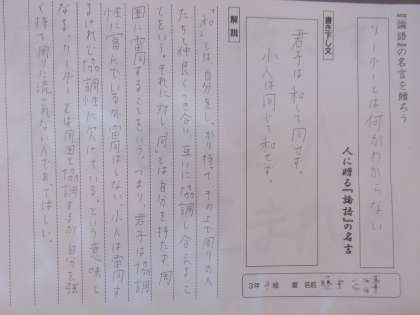 『論語』の名言を贈ろう
リーダーとは何かわからない
人に贈る『論語』の名言
書き下し文
君子は和して同ぜず。
小人は同じて和せず。
3年 組 番 名前
解説
「和」とは自分をしっかり持って、その上で周りの人
たちと仲良くつき合い、互いに協調し合えるこ
とをいう。それに対し「同」とは自分を持たず周
囲に雷同することをいう。つまり、君子は協調
性に富んでいるが雷同はしない、小人は雷同す
るけれど協調性に欠けている。という意味と
なる。リーダーとは周囲と協調するが、自分を強
く持ち周りに流されない人であってほしい。